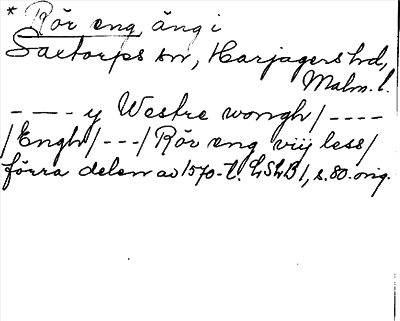 * Rör eng äng i
Saxtorps sn, Harjagers hd,
Malm. l.
- - - - y Westre wongh / - - - -
/ Engh / - - - / Rör eng viij less /
förra delen av 1570-t. LSLB 1, s. 80. orig.